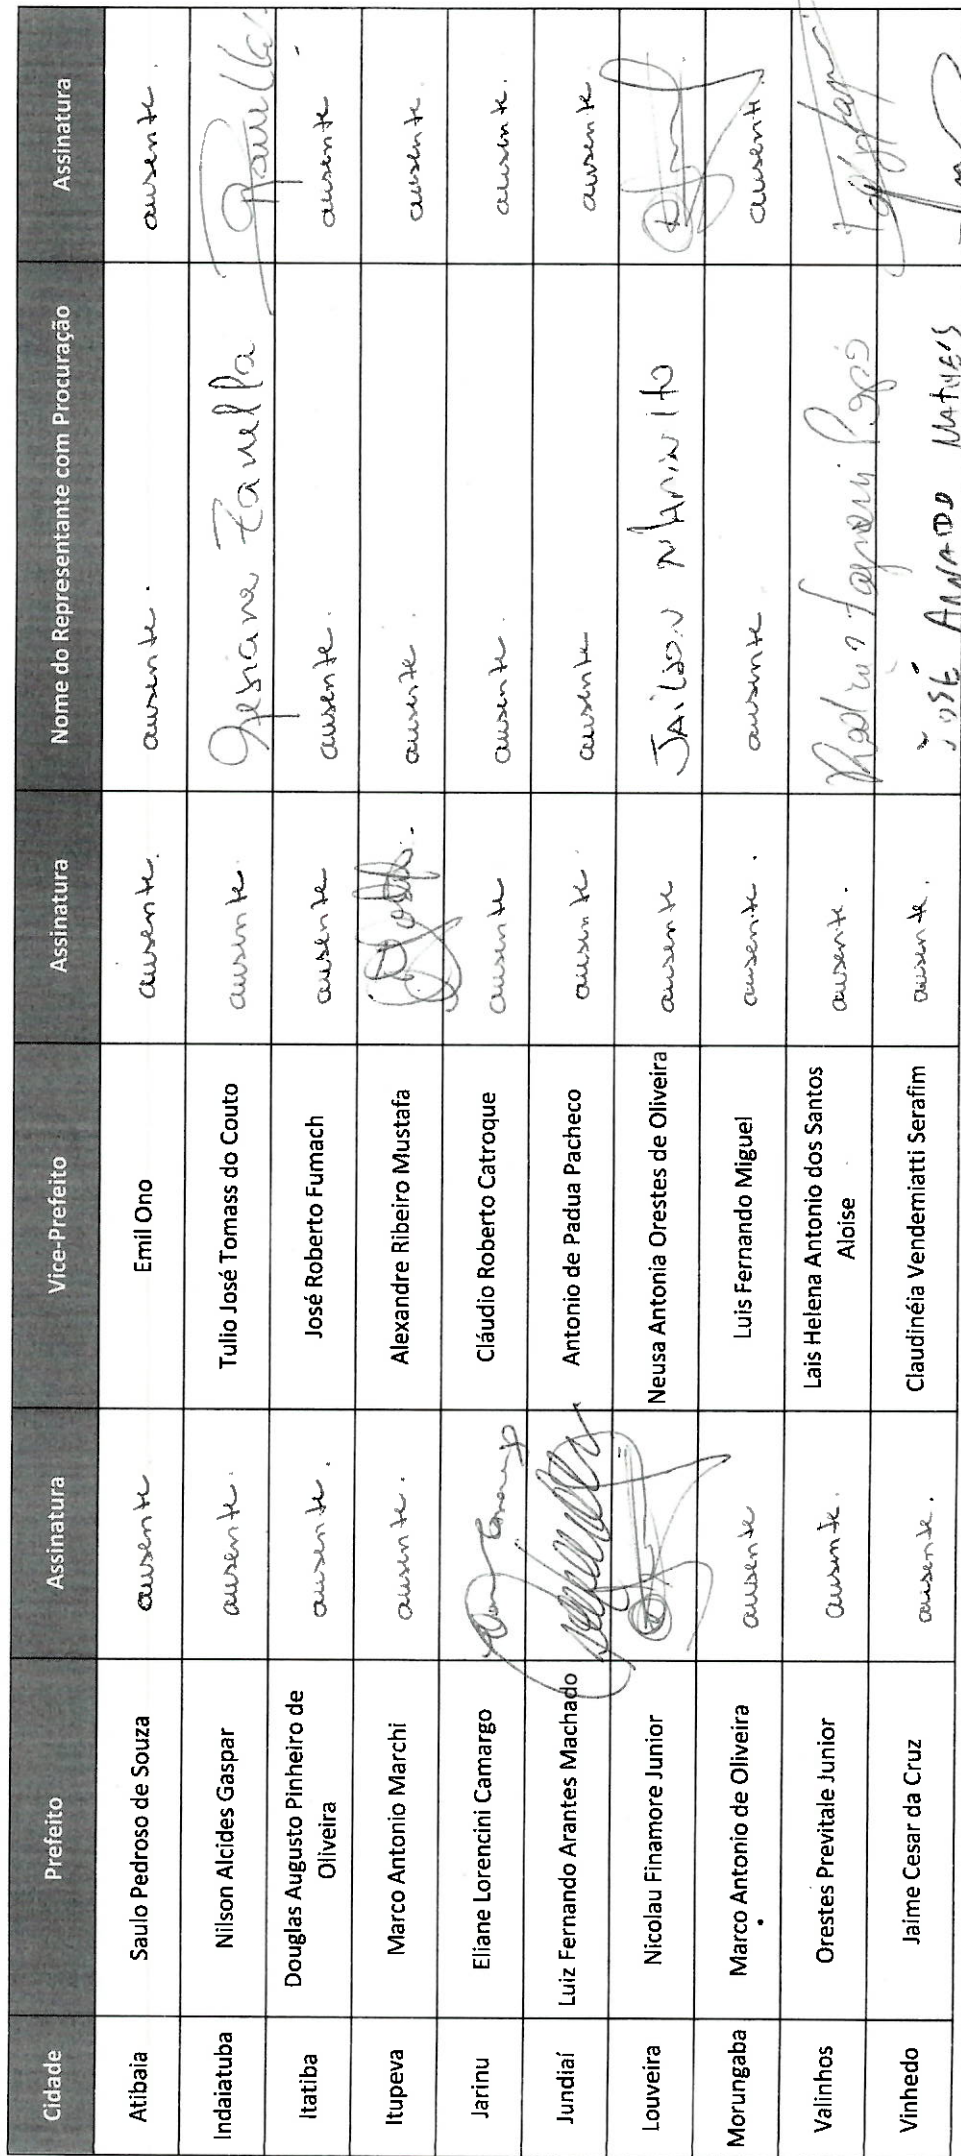 Cidade Prefeito Assinatura Vice-Prefeito Assinatura Nome do Representante com Procuração Assinatura
Atibaia Saulo Pedroso de Souza ausente Emil Ono ausente. ausente. ausente.
Indaiatuba Nilson Alcides Gaspar ausente. Tulio José Tomass do Couto ausente. Zanella
Itatiba Douglas Augusto Pinheiro de ausente. José Roberto Fumach ausente ausente. ausente
Oliveira
Itupeva Marco Antonio Marchi ausente. Alexandre Ribeiro Mustafa ausente. ausente.
Jarinu Eliane Lorencini Camargo Cláudio Roberto Catroque ausente ausente. ausente.
Jundiaí Luiz Fernando Arantes Machado Antonio de Padua Pacheco ausente. ausente ausente
Louveira Nicolau Finamore Junior Neusa Antonia Orestes de Oliveira ausente JAILSON MARINHO
Morungaba Marco Antonio de Oliveira ausente Luis Fernando Miguel ausente. ausente ausente.
Valinhos Orestes Previtale Junior ausente. Lais Helena Antonio dos Santos ausente.
Aloise
Vinhedo Jaime Cesar da Cruz ausente. Claudinéia Vendemiatti Serafim ausente. JOSÉ